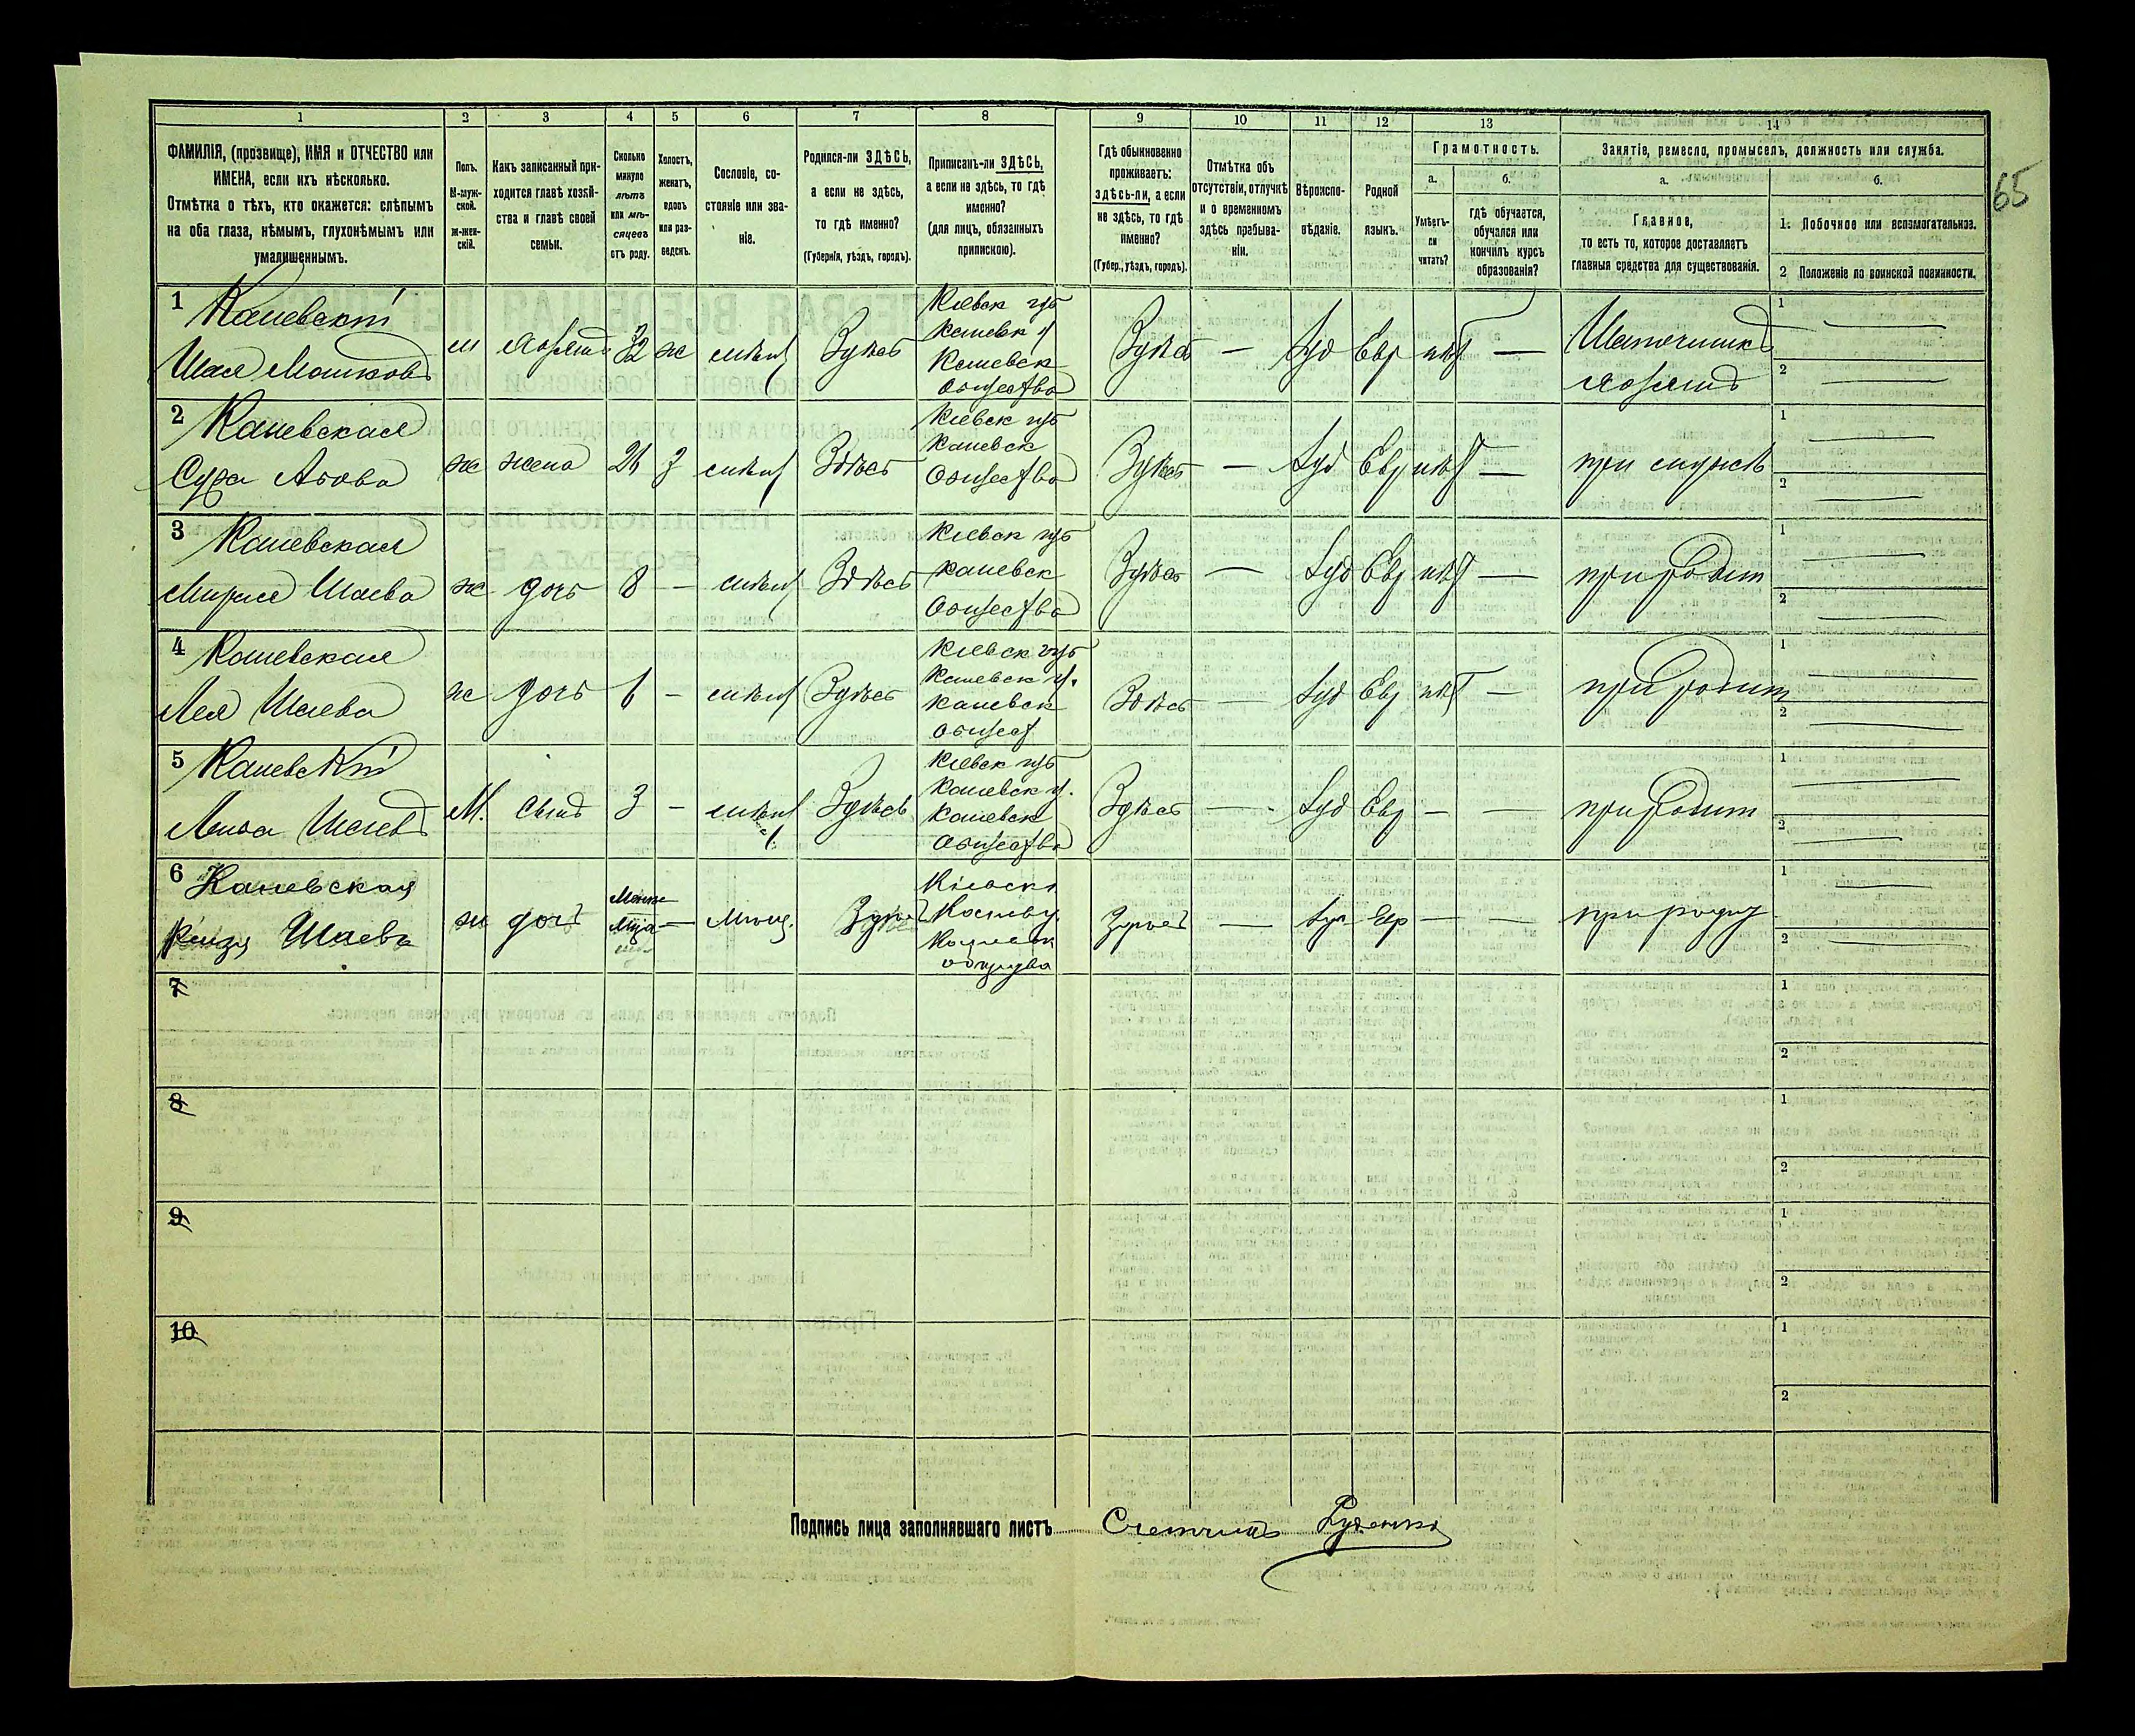 65
1 2 3 4 5 6 7 8 9 10 11 12 13 14
ФАМИЛІЯ, (прозвище), ИМЯ и ОТЧЕСТВО или
ИМЕНА, если ихъ нѣсколько.
Отмѣтка о тѣхъ, кто окажется: слѣпымъ
на оба глаза, нѣмымъ, глухонѣмымъ или
умалишеннымъ.
Полъ.
М-муж-
ской.
Ж-жен-
скій.
Какъ записанный при-
ходится главѣ хозяй-
ства и главѣ своей
семьи.
Сколько
минуло
лѣтъ
или мѣ-
сяцевъ
отъ роду.
Холостъ,
женатъ,
вдовъ
или раз-
веденъ.
Сословіе, со-
стояніе или зва-
ніе.
Родился-ли ЗДѢСЬ,
а если не здѣсь,
то гдѣ именно?
(Губернія, уѣздъ, городъ).
Приписанъ-ли ЗДѢСЬ,
а если не здѣсь, то гдѣ
именно?
(для лицъ, обязанныхъ
припискою).
Гдѣ обыкновенно
проживаетъ:
здѣсь-ли, а если
не здѣсь, то гдѣ
именно?
(Губер., уѣздъ, городъ).
Отмѣтка объ
отсутствіи, отлучкѣ
и о временномъ
здѣсь пребыва-
ніи.
Вѣроиспо-
вѣданіе.
Родной
языкъ.
Грамотность.
а.
Умѣетъ-
ли
читать?
б.
гдѣ обучается,
обучался или
кончилъ курсъ
образованія?
Занятіе, ремесло, промыселъ, должность или служба.
а.
Главное,
то есть то, которое доставляетъ
главныя средства для существованія.
б.
1. Побочное или вспомогательное.
2 Положеніе по воинской повинности.
1 Каневскій
Шая Мошковъ
м хозяинъ 32 ж мѣщ Здѣсь
Кіевск губ
Каневск у
Каневск
общества
Здѣсь — Іуд Евр нѣт —
хозяинъ
1 —
2 —
2 Каневская
Сура
ж жена 3 мѣщ Здѣсь
Кіевск губ
Каневск
Общества
Здѣсь — Іуд Евр нѣт —
при мужѣ
1 —
2 —
3 Каневская
Шаева
ж дочь 8 — мѣщ Здѣсь
Кіевск губ
Каневск
Общества
Здѣсь — Іуд Евр нѣт —
при родит
1 —
2 —
4 Каневская
Лея Шаева
ж дочь 6 — мѣщ Здѣсь
Кіевск губ
Каневск у.
Каневск
общест
Здѣсь — Іуд Евр нѣт —
при родит
1 —
2 —
5 Каневскій
Шаевъ
М. сынъ 3 — мѣщ Здѣсь
Кіевск губ
Каневск у.
Каневск
Общества
Здѣсь — Іуд Евр — —
при родит
1 —
2 —
6 Каневская
Шаева
ж дочь — мѣщ. Здѣсь
Кіевск
Каневск
общества
Здѣсь — Іуд Евр — —
при родит
1 —
2 —
7
1
2
8
1
2
9
1
2
10
1
2
Подпись лица заполнявшаго листъ Счетчикъ